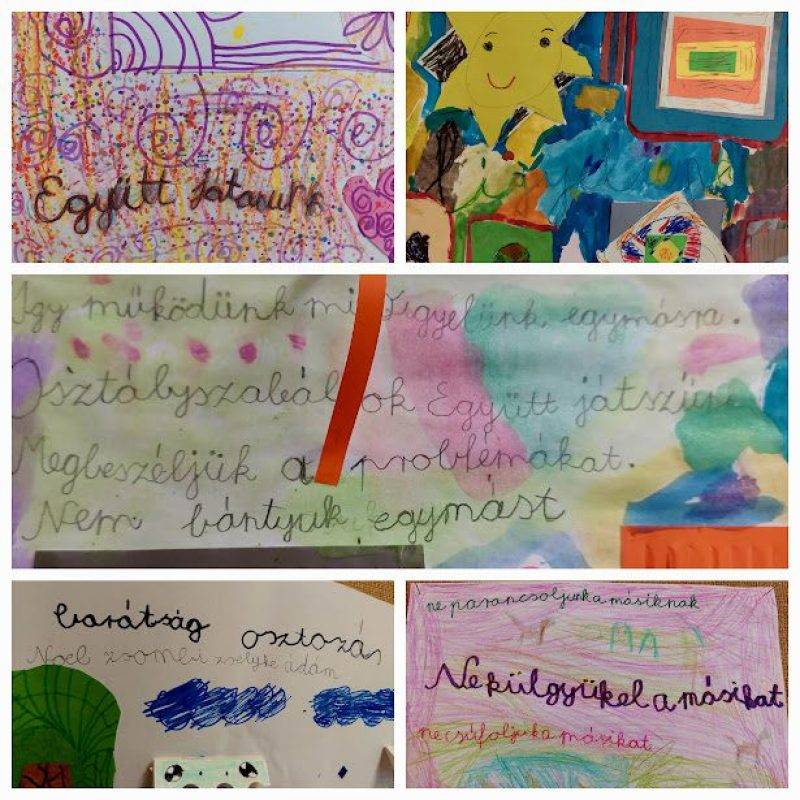 Együtt
Így működünk mi Figyelünk egymásra.
Osztályszabályok Együtt játszunk
Megbeszéljük a problémákat.
Nem bántyuk egymást
barátság osztozás
Noel zoombi zselyke ádám
ne parancsoljunka másiknak
MA
Nekülgyükel a másikat
necsúfoljuka másikat